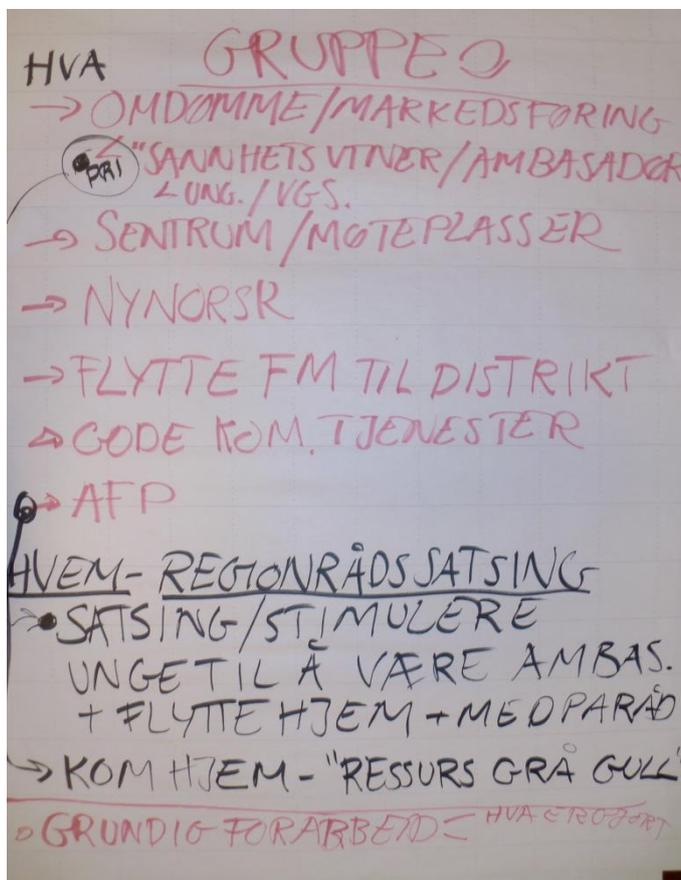 HVA GRUPPE
→ OMDØMME/MARKEDSFØRING
PRI "SANNHETSVITNER/AMBASADØR
∠ UNG./VGS.
→ SENTRUM/MØTEPLASSER
→ NYNORSK
→ FLYTTE FM TIL DISTRIKT
→ GODE KOM. TJENESTER
→ AFP
HVEM - REGIONRÅDSSATSING
• SATSING/STIMULERE
UNGE TIL Å VÆRE AMBAS.
+ FLYTTE HJEM +
→ KOM HJEM - "RESSURS GRÅ GULL"
GRUNDIG FORARBEID - HVA ER GJORT